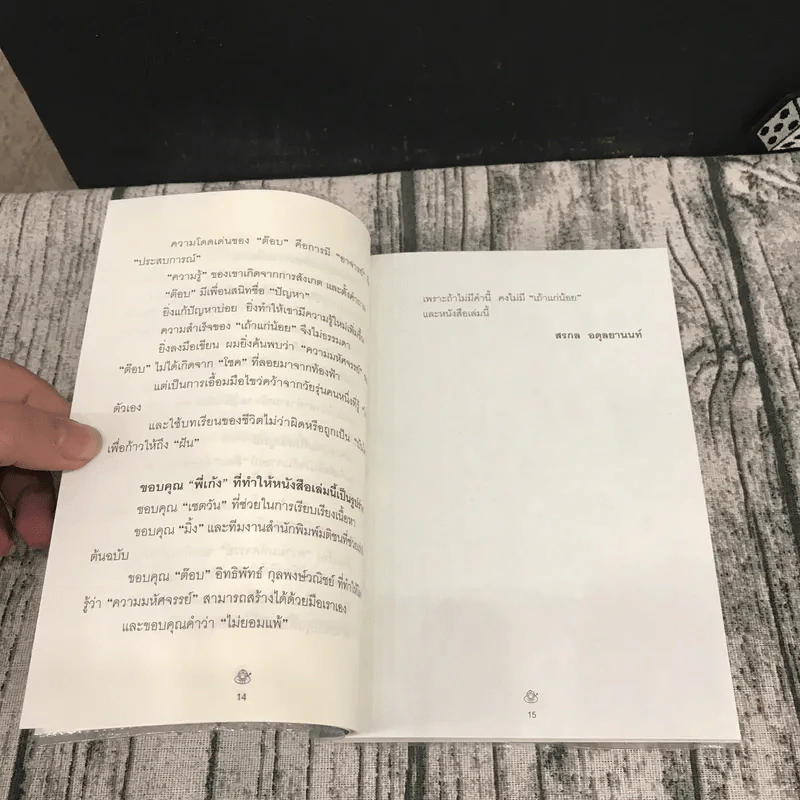 ความโดดเด่นของ “ต๊อบ” คือการมี “อาจารย์” ชื่อ
“ประสบการณ์”
“ความรู้” ของเขาเกิดจากการสังเกต และตั้งคำถาม
“ต๊อบ” มีเพื่อนสนิทชื่อ “ปัญหา”
ยิ่งแก้ปัญหาบ่อย ยิ่งทำให้เขามีความรู้ใหม่เพิ่มขึ้น
ความสำเร็จของ “เถ้าแก่น้อย” จึงไม่ธรรมดา
ยิ่งลงมือเขียน ผมยิ่งค้นพบว่า “ความมหัศจรรย์”
“ต๊อบ” ไม่ได้เกิดจาก “โชค” ที่ลอยมาจากท้องฟ้า
แต่เป็นการเอื้อมมือไขว่คว้าจากวัยรุ่นคนหนึ่งที่รู้
ตัวเอง
และใช้บทเรียนของชีวิตไม่ว่าผิดหรือถูกเป็น
เพื่อก้าวให้ถึง “ฝัน”
ขอบคุณ “พี่เก้ง” ที่ทำให้หนังสือเล่มนี้เป็นรูปร่าง
ขอบคุณ “เชตวัน” ที่ช่วยในการเรียบเรียงเนื้อหา
ขอบคุณ “มิ้ง” และทีมงานสำนักพิมพ์มติชนที่ช่วย
ต้นฉบับ
ขอบคุณ “ต๊อบ” อิทธิพัทธ์ กุลพงษ์วณิชย์ ที่ทำให้
รู้ว่า “ความมหัศจรรย์” สามารถสร้างได้ด้วยมือเราเอง
และขอบคุณคำว่า “ไม่ยอมแพ้”
14
เพราะถ้าไม่มีคำนี้ คงไม่มี “เถ้าแก่น้อย”
และหนังสือเล่มนี้
สรกล อดุลยานนท์
15